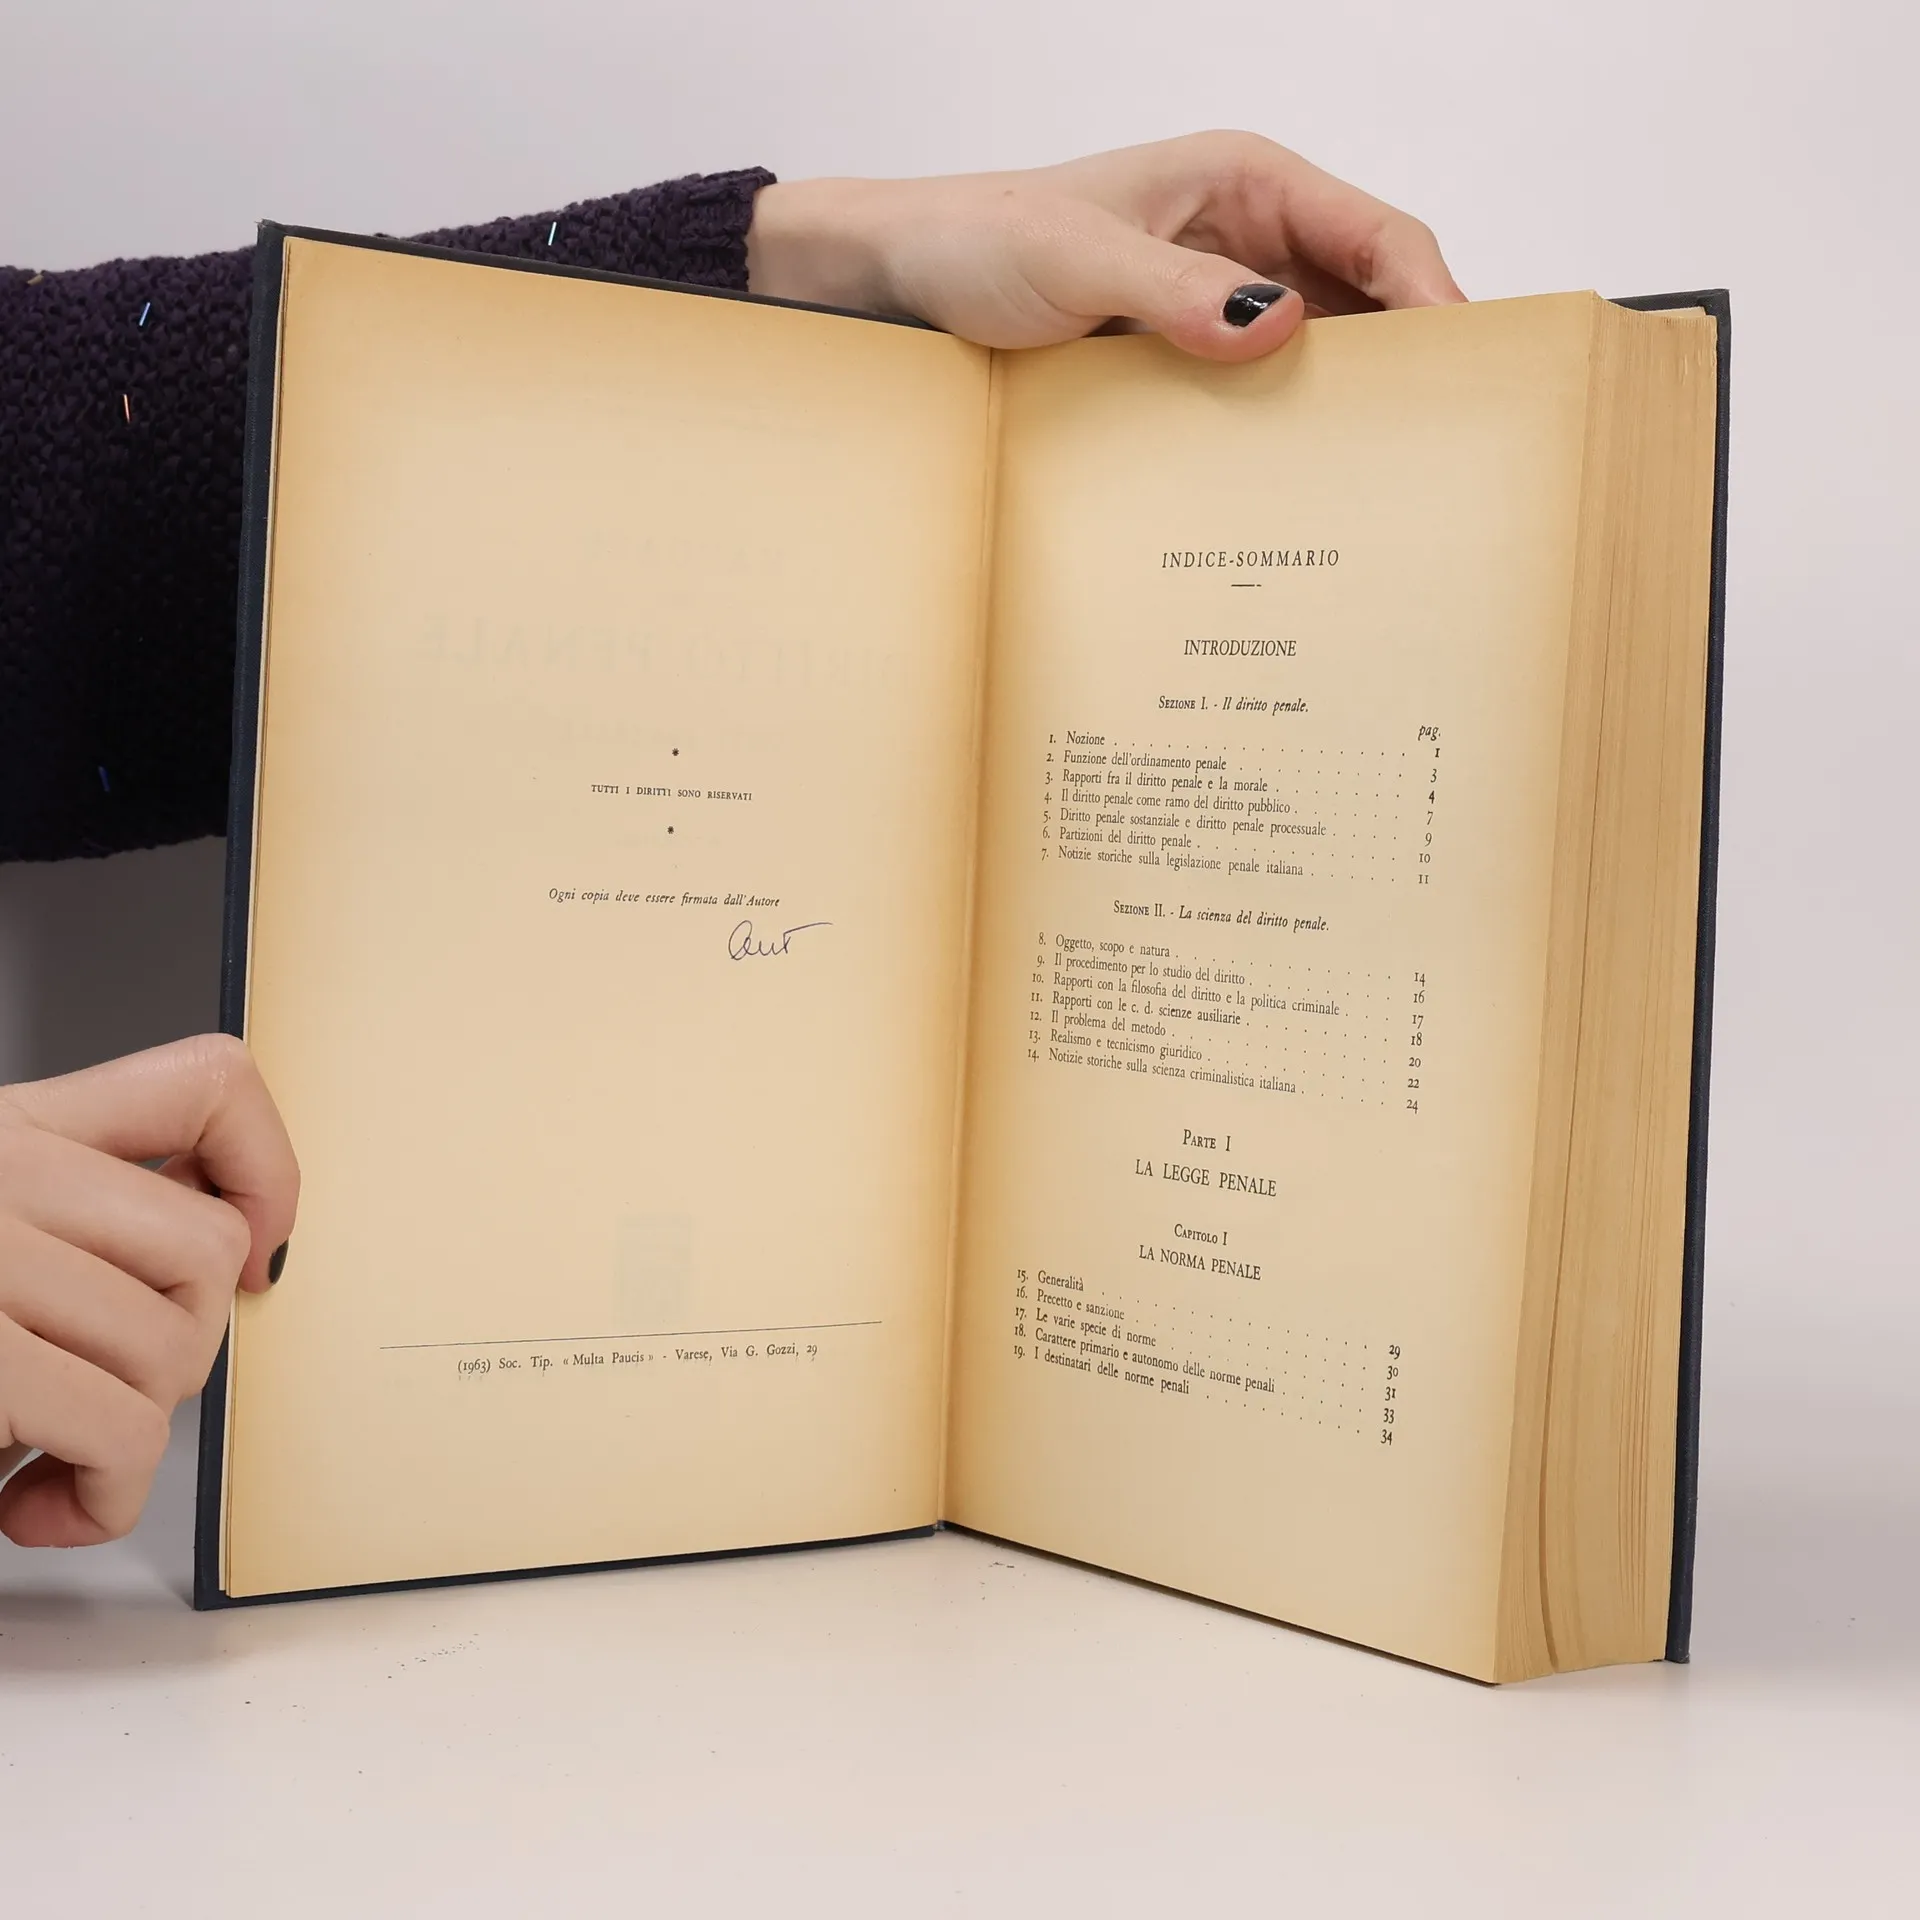 *
TUTTI I DIRITTI SONO RISERVATI
*
Ogni copia deve essere firmata dall'Autore
(1963) Soc. Tip. « Multa Paucis » - Varese, Via G. Gozzi, 29
INDICE-SOMMARIO
INTRODUZIONE
Sezione I. - Il diritto penale.
pag.
1. Nozione . . . . . . . . . . . . . . . 1
2. Funzione dell'ordinamento penale . . . . . . . . . 3
3. Rapporti fra il diritto penale e la morale . . . . . . . 4
4. Il diritto penale come ramo del diritto pubblico . . . . . . 7
5. Diritto penale sostanziale e diritto penale processuale . . . . 9
6. Partizioni del diritto penale . . . . . . . . . . 10
7. Notizie storiche sulla legislazione penale italiana . . . . . 11
Sezione II. - La scienza del diritto penale.
8. Oggetto, scopo e natura . . . . . . . . . . . 14
9. Il procedimento per lo studio del diritto . . . . . . . 16
10. Rapporti con la filosofia del diritto e la politica criminale . . . 17
11. Rapporti con le c. d. scienze ausiliarie . . . . . . . 18
12. Il problema del metodo . . . . . . . . . . . 20
13. Realismo e tecnicismo giuridico . . . . . . . . . 22
14. Notizie storiche sulla scienza criminalistica italiana . . . . . 24
Parte I
LA LEGGE PENALE
Capitolo I
LA NORMA PENALE
15. Generalità . . . . . . . . . . . . . . 29
16. Precetto e sanzione . . . . . . . . . . . . 30
17. Le varie specie di norme . . . . . . . . . . . 31
18. Carattere primario e autonomo delle norme penali . . . . . 33
19. I destinatari delle norme penali . . . . . . . . . 34